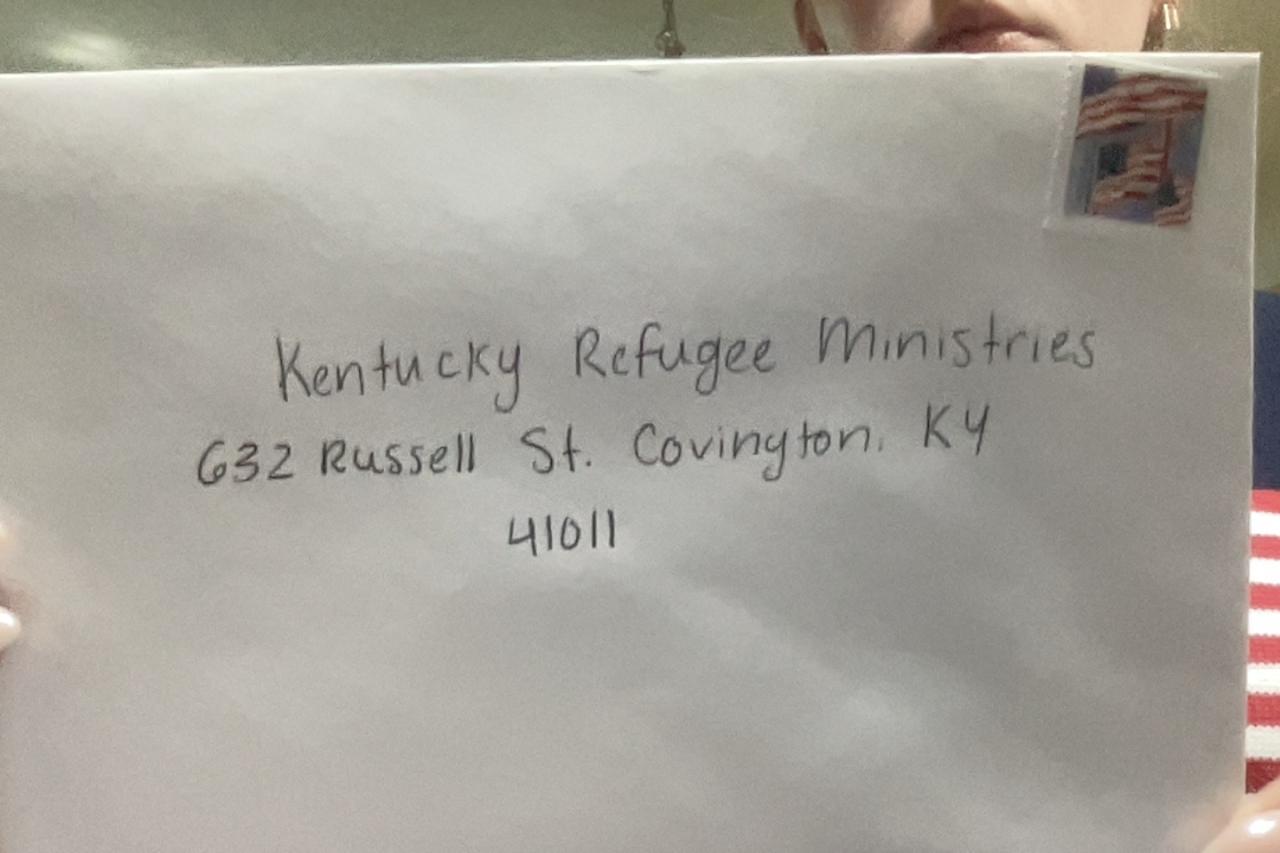 Kentucky Refugee Ministries
632 Russell St. Covington, KY
41011